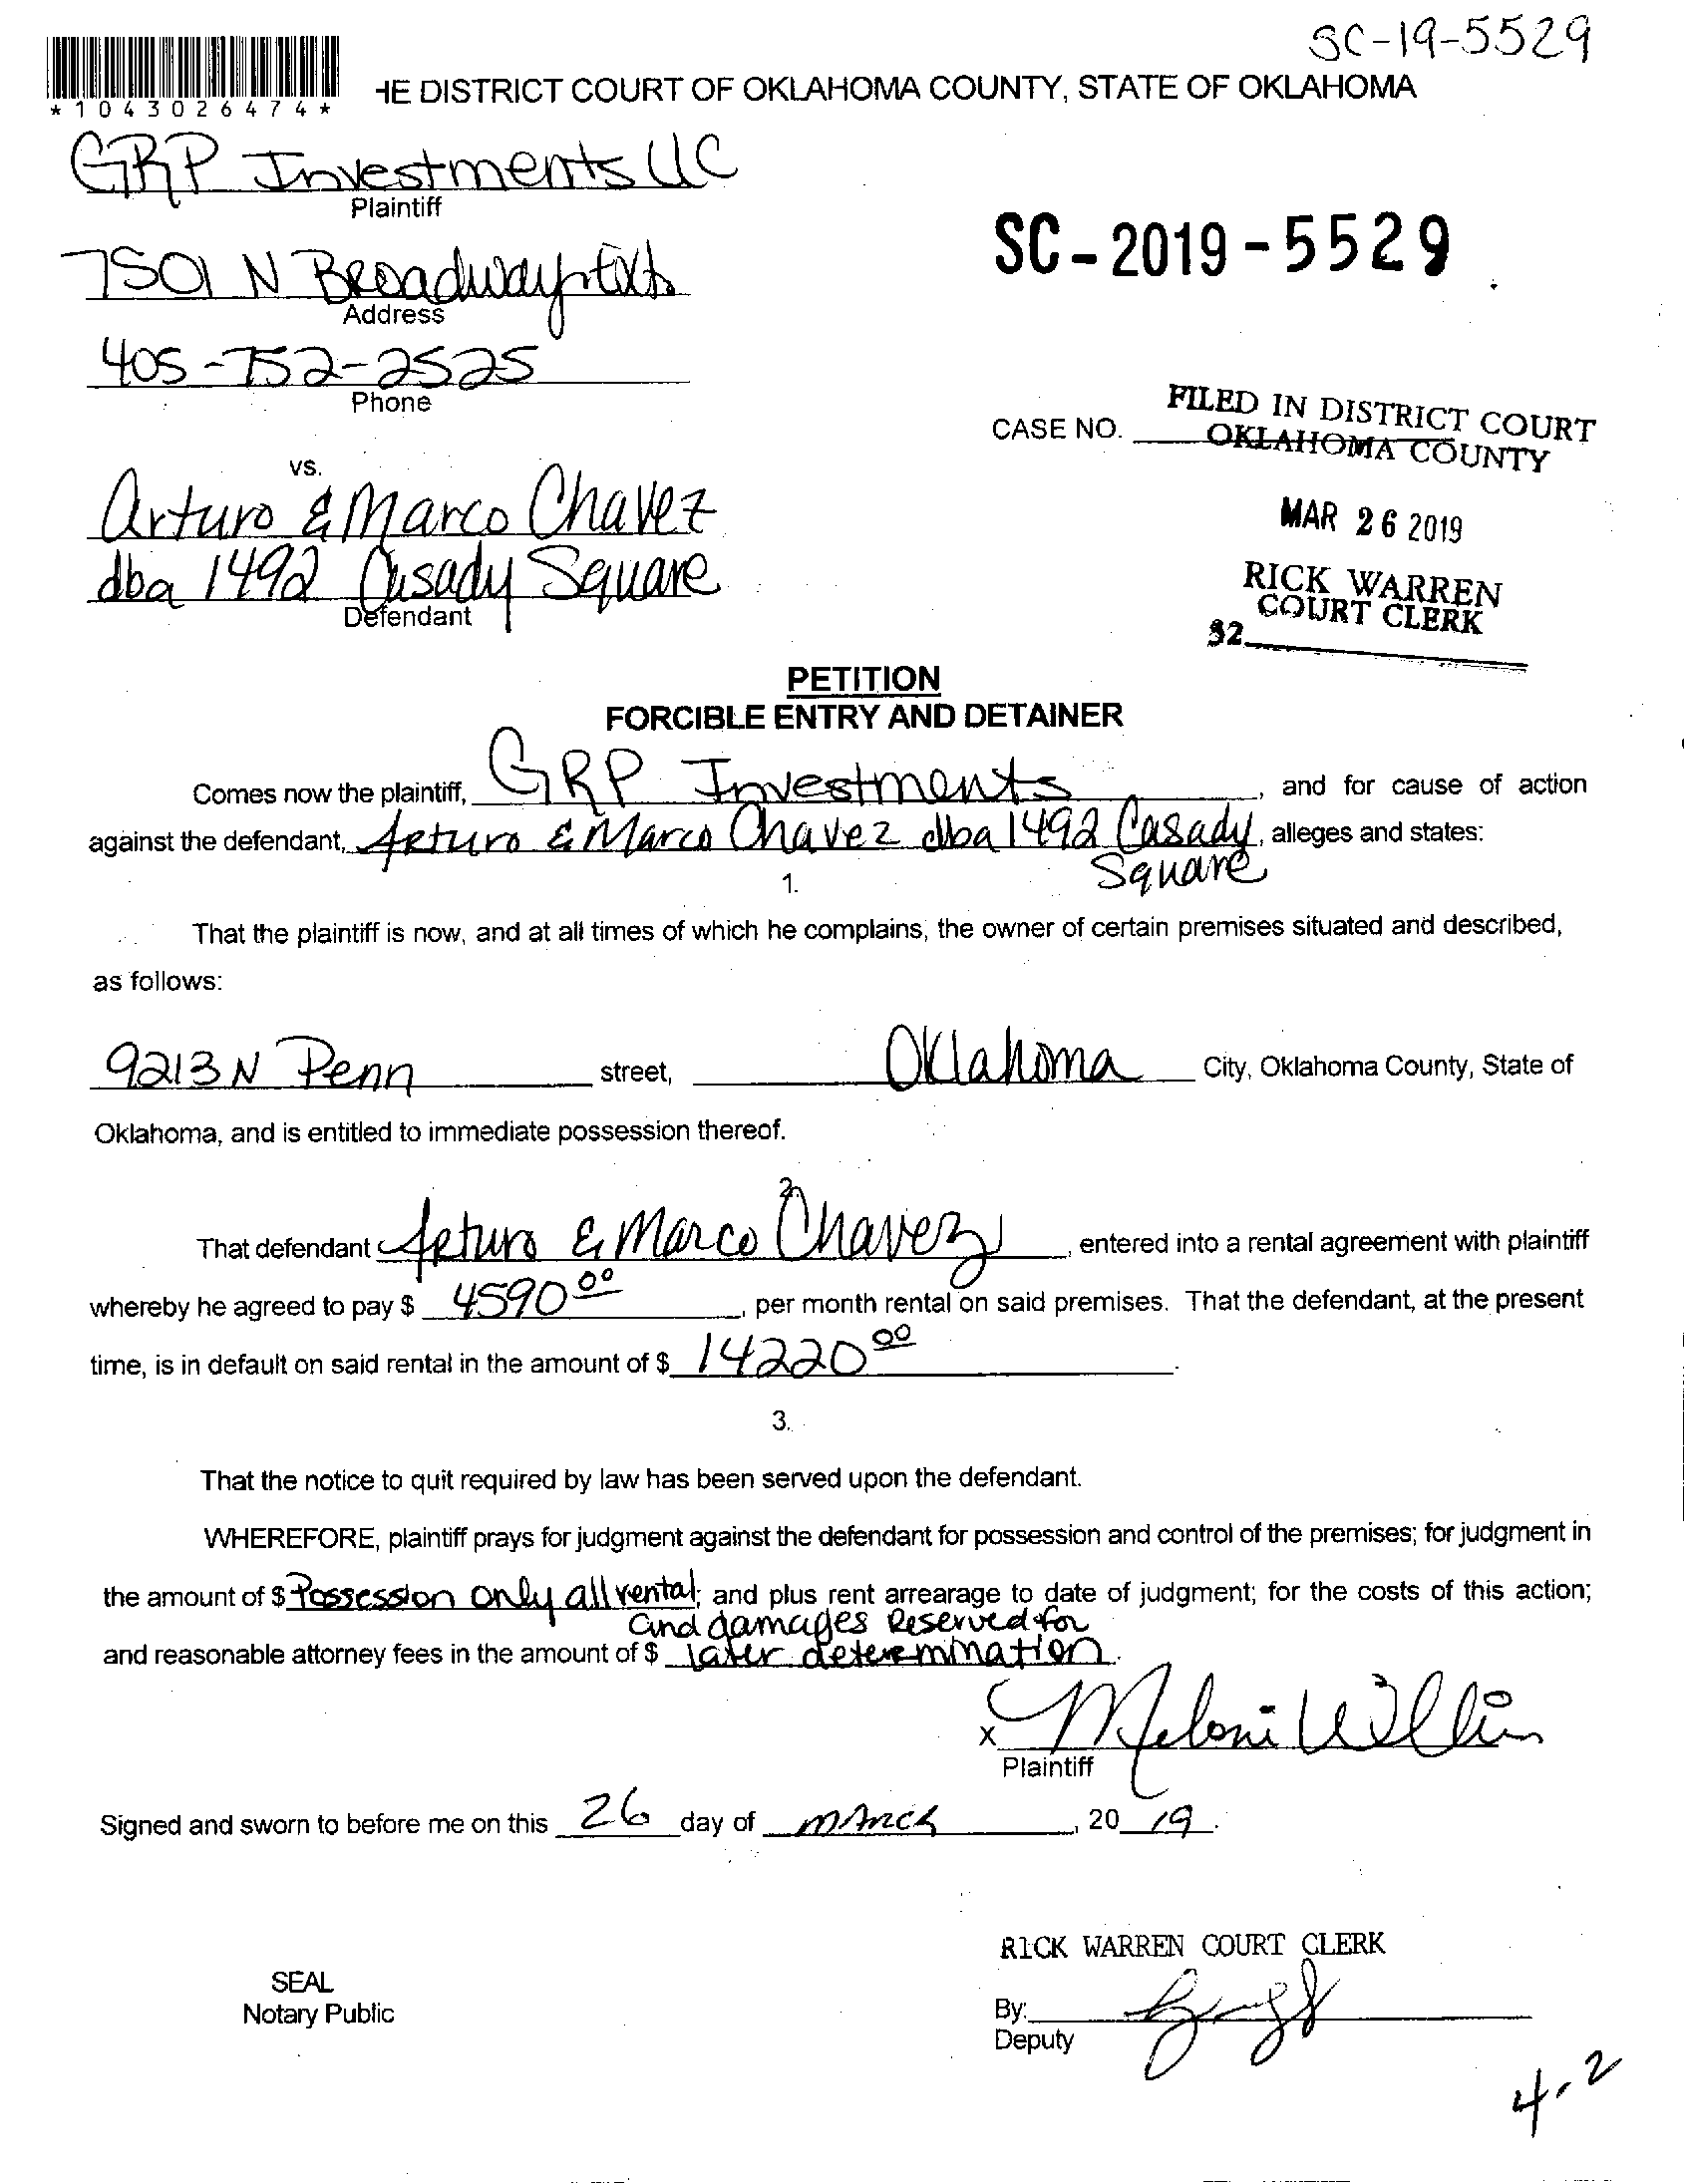 SC-19-5529
*1043026474*
HE DISTRICT COURT OF OKLAHOMA COUNTY, STATE OF OKLAHOMA
GRP Investments LLC
Plaintiff
SC-2019-5529
7501 N Broadway Ext
Address
405-752-2525
Phone
FILED IN DISTRICT COURT
CASE NO.
OKLAHOMA COUNTY
vs.
Arturo & Marco Chavez
MAR 26 2019
dba 1492 Casady Square
Defendant
RICK WARREN
COURT CLERK
32
PETITION
FORCIBLE ENTRY AND DETAINER
Comes now the plaintiff, GRP Investments, and for cause of action
against the defendant, Arturo & Marco Chavez dba 1492 Casady, alleges and states:
Square
1.
That the plaintiff is now, and at all times of which he complains, the owner of certain premises situated and described,
as follows:
9213 N Penn street, Oklahoma City, Oklahoma County, State of
Oklahoma, and is entitled to immediate possession thereof.
2.
That defendant Arturo & Marco Chavez, entered into a rental agreement with plaintiff
whereby he agreed to pay $ 4590 00, per month rental on said premises. That the defendant, at the present
time, is in default on said rental in the amount of $ 14220 00.
3.
That the notice to quit required by law has been served upon the defendant.
WHEREFORE, plaintiff prays for judgment against the defendant for possession and control of the premises; for judgment in
the amount of $ Possession only all rental; and plus rent arrearage to date of judgment; for the costs of this action;
and damages Reserved for
and reasonable attorney fees in the amount of $ later determination.
x Meloni
Plaintiff
Signed and sworn to before me on this 26 day of March, 20 19.
RICK WARREN COURT CLERK
SEAL
Notary Public
By:
Deputy
4-2